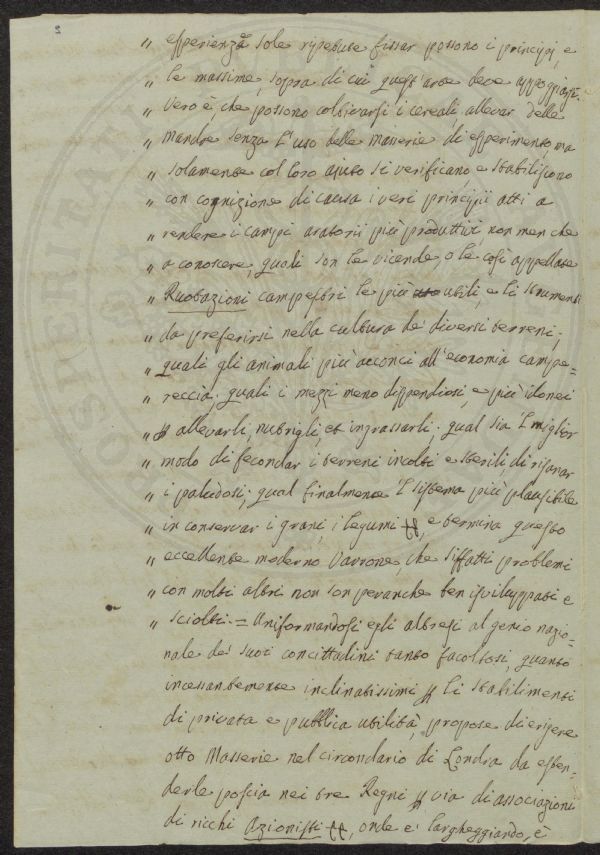 2
" esperienza sole ripetute fissar possono i principj, e
" le massime, sopra di cui quest'arte deve appoggiarsi.
" Vero è, che possono coltivarsi i cereali, allevar delle
" Mandre senza l'uso delle Masserie di esperimento, ma
" solamente col loro ajuto si verificano e stabiliscono
" con cognizione di causa i veri principii atti a
" rendere i campi aratorii più produttivi, non men che
" a conoscere, quali son le vicende, o le così appellate
" Ruotazioni campestri le più utili, e li strumenti
" da preferirsi nella cultura de' diversi terreni;
" quali gli animali più acconci all'economia campe=
" reccia; quali i mezzi meno dispendiosi, e più idonei
" p allevarli, nutrigli, et ingrassarli; qual sia 'l miglior
" modo di fecondar i terreni incolti e sterili, di risanar
" i paludosi; qual finalmente 'l sistema più plausibile
" in conservar i grani, i legumi, e termina questo
" eccellente moderno Varrone, che siffatti problemi
" con molti altri non son peranche ben isviluppati e
" sciolti. = Uniformandosi egli altresì al genio nazio=
nale de' suoi concittadini tanto facoltosi, quanto
incessantemente inclinatissimi p li stabilimenti
di privata e pubblica utilità, propose di erigere
otto Masserie nel circondario di Londra da esten=
derle poscia nei tre Regni p via di associazioni
di ricchi Azionisti, onde e' largheggiando, è